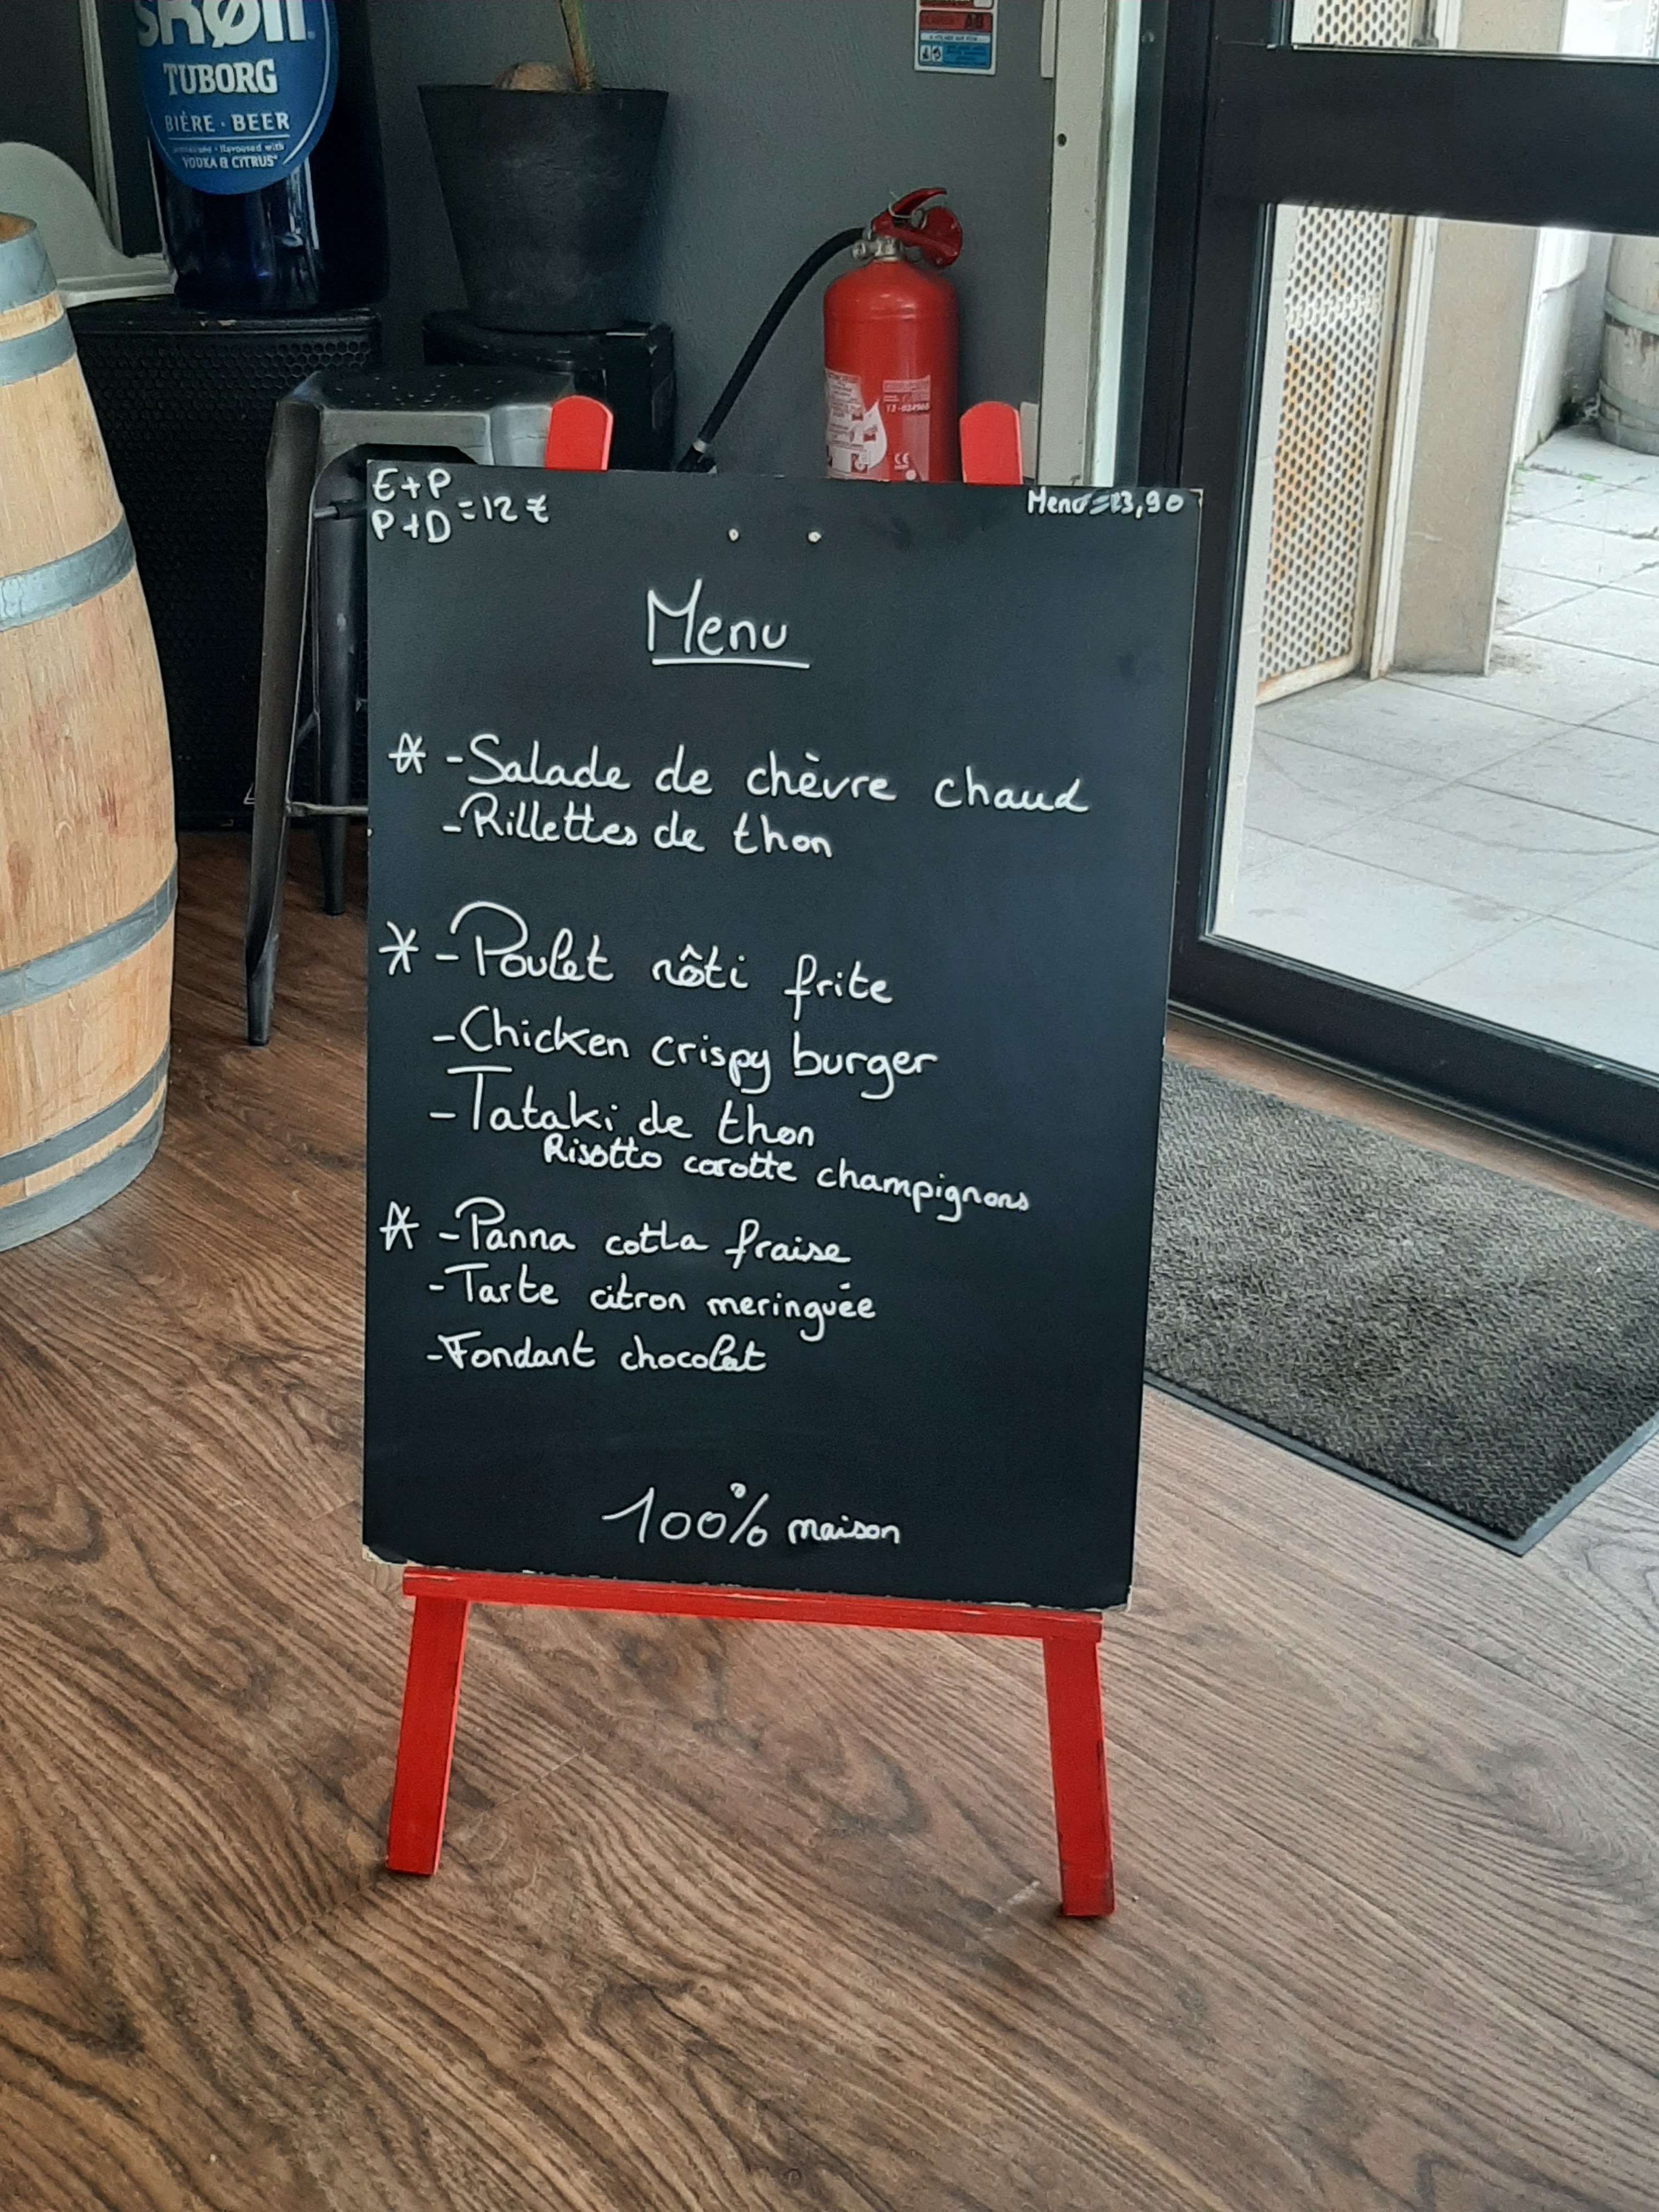 SKØLL
TUBORG
BIÈRE · BEER
flavoured with
VODKA & CITRUS*
E+P
P+D =12 €
Menu=13,90
Menu
-Salade de chèvre chaud
-Rillettes de thon
-Poulet rôti frite
-Chicken crispy burger
-Tataki de thon
Risotto carotte champignons
-Panna cotta fraise
-Tarte citron meringuée
-Fondant chocolat
100% maison